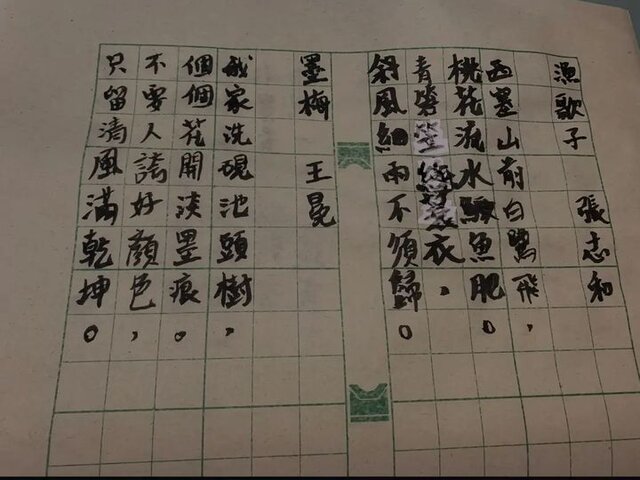 漁歌子 張志和
西塞山前白鷺飛，
桃花流水鱖魚肥。
青箬笠綠蓑衣，
斜風細雨不須歸。
墨梅 王冕
我家洗硯池頭樹，
個個花開淡墨痕。
不要人誇好顏色，
只留清風滿乾坤。